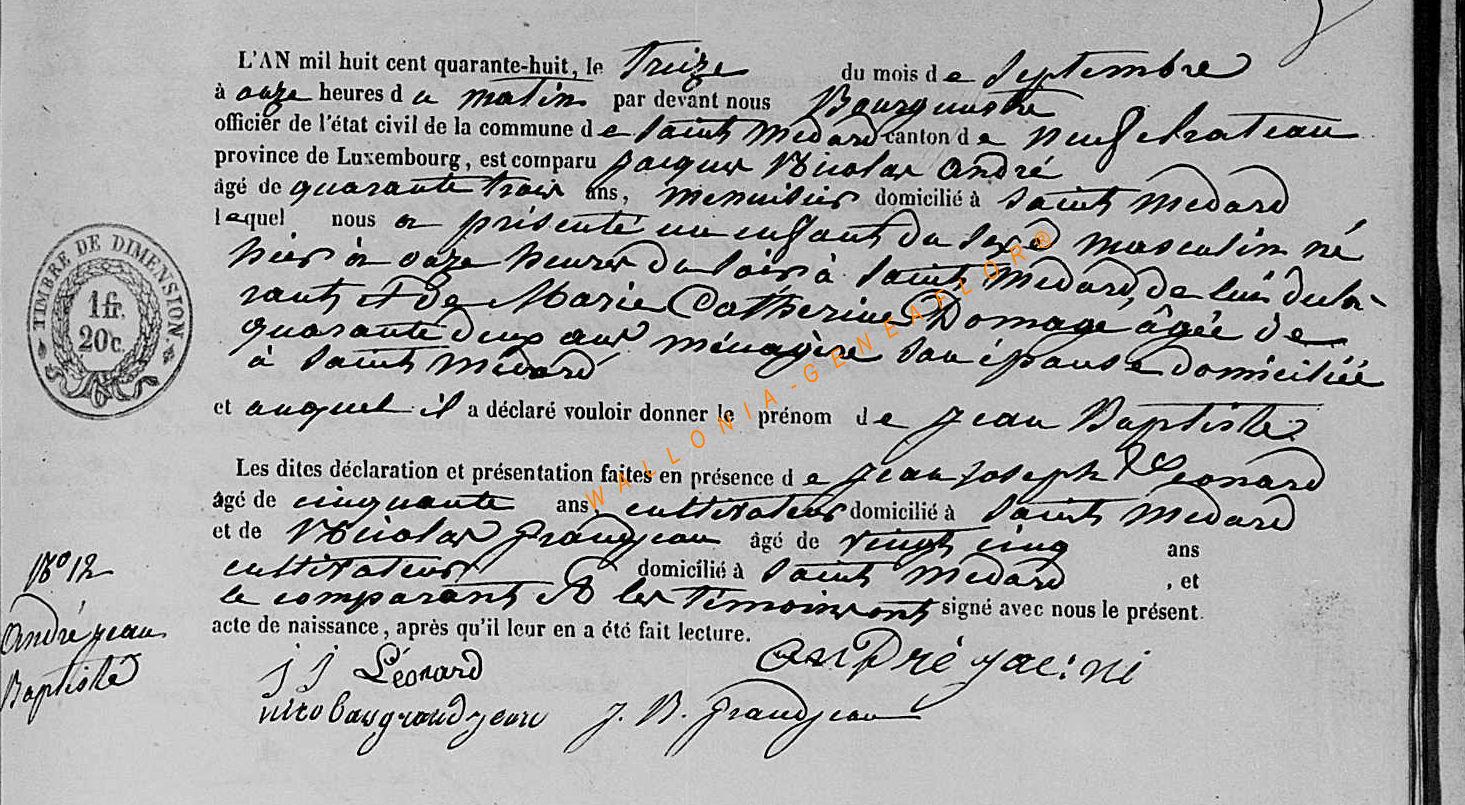 L'AN mil huit cent quarante-huit, le treize du mois de Septembre
à onze heures du matin par devant nous Bourgmestre
officier de l'état civil de la commune de Saint Medard canton de Neufchateau
province de Luxembourg, est comparu Jacques Nicolas André
âgé de quarante trois ans, menuisier domicilié à Saint Medard
lequel nous a présenté un enfant du sexe masculin né
hier à onze heures du soir à Saint Medard, de lui décla-
rant et de Marie Catherine Domage âgée de
quarante deux ans ménagère son épouse domiciliée
à Saint Medard
et auquel il a déclaré vouloir donner le prénom de Jean Baptiste
Les dites déclaration et présentation faites en présence de Jean Joseph Léonard
âgé de cinquante ans, cultivateur domicilié à Saint Medard
et de Nicolas Grandjean âgé de vingt cinq ans
cultivateur domicilié à Saint Medard, et
le comparant et les témoins ont signé avec nous le présent
acte de naissance, après qu'il leur en a été fait lecture.
j j Léonard
André jac: ni
nicolas grandjean J. B. Grandjean
N° 12
André Jean
Baptiste
TIMBRE DE DIMENSION
1 fr.
20 c.
WALLONIA-GENEAFLOR®